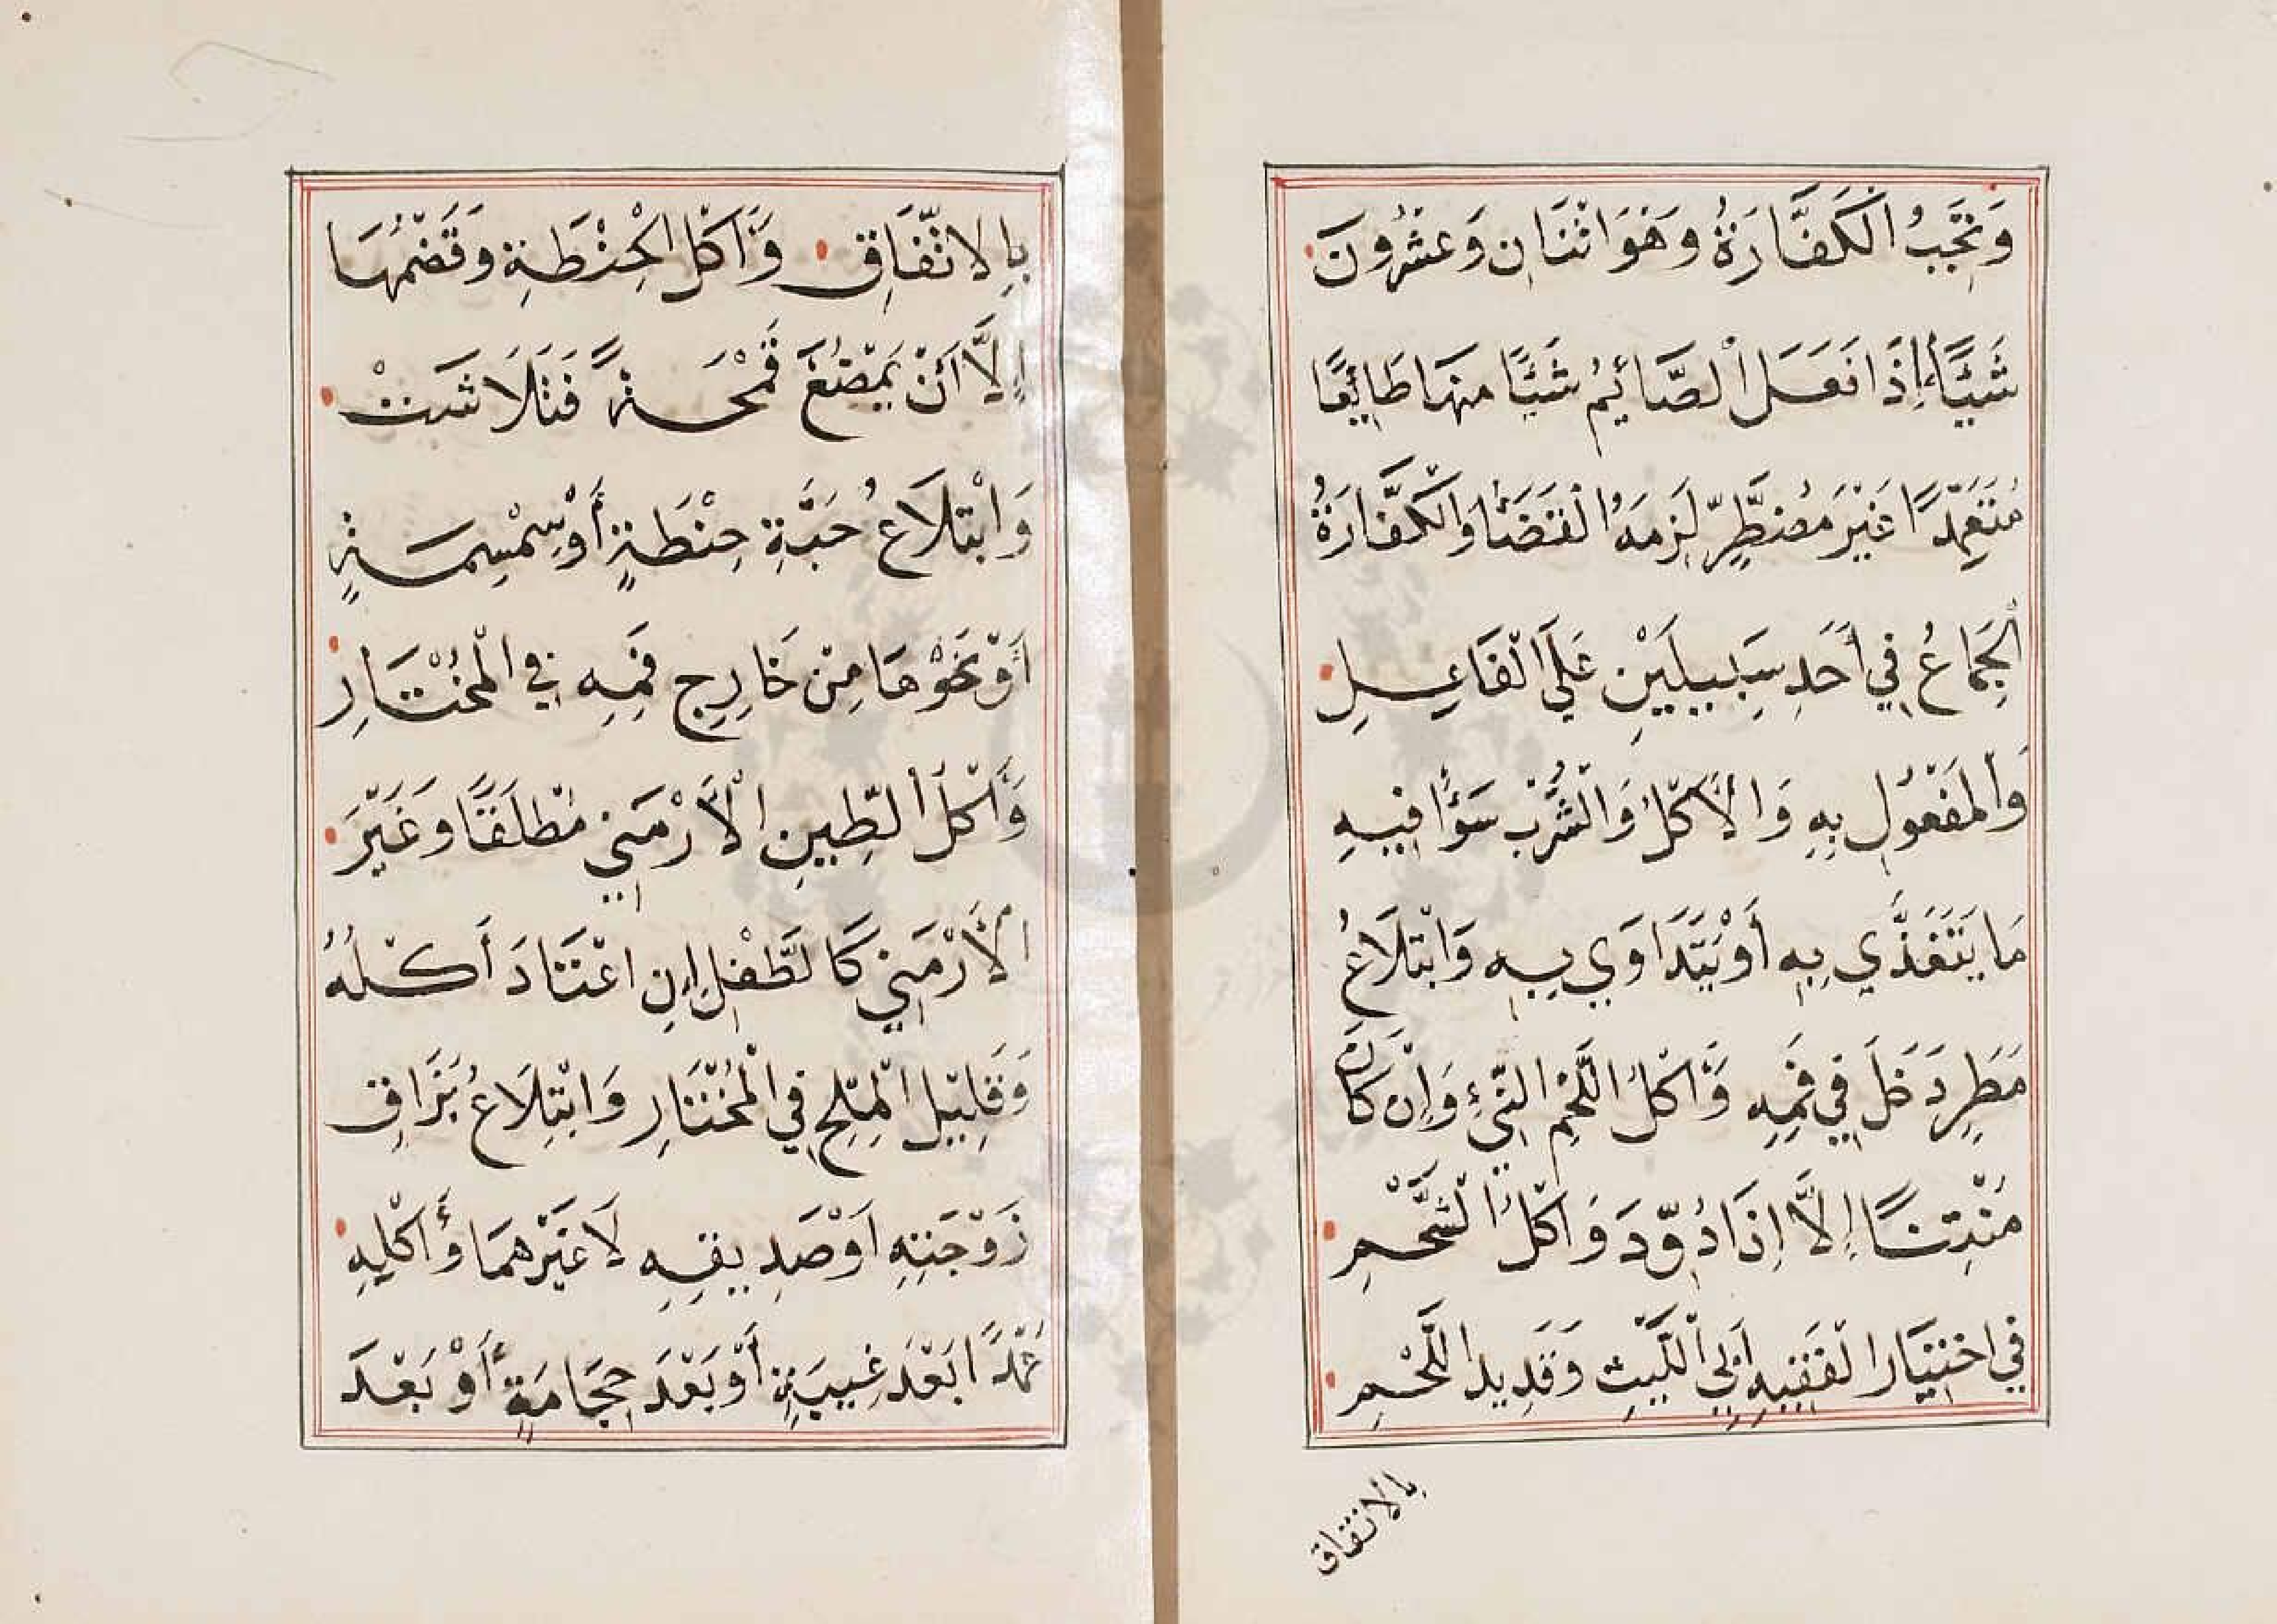 وَتَجِبُ الْكَفَّارَةُ وَهَوَ اثْنَانِ وَعَشْرُونَ
شَيْئًا إِذَا فَعَلَ الصَّائِمُ شَيْئًا مِنهَا طَائِعًا
مُتَعَمِّدًا غَيْرَ مُضْطَرٍّ لَزِمَهُ الْقَضَا وَالْكَفَّارَةُ
الْجِمَاعُ فِي أَحَدِ سَبِيلَيْنِ عَلَى الْفَاعِلِ
وَالْمَفْعُولِ بِهِ وَالْأَكْلُ وَالشُّرْب سَوَأ فِيهِ
مَا يَتَغَذَّي بِهِ أَوْ يَتَدَاوَي بِهِ وَابْتِلَاعُ
مَطِرٍ دَخَلَ فِي فَمِهِ وَأَكْلُ اللَّحْمِ النِّيْءِ وَإِنْ كَانَ
مُنْتِنًا إِلَّا إِذَا دُوِّدَ وَأَكْلُ الشَّحْمِ
فِي اخْتِيَارِ الْفَقِيهِ أَبِي اللَّيْثِ وَقَدِيدِ اللَّحْمِ
بالاتفاق
بِالاتِّفَاقِ وَأَكْلُ الْحِنْطَةِ وَقَضْمُهَا
إِلَّا أَنْ يَمْضُغَ قَمْحَةً فَتَلَاشَتْ
وَابْتِلَاعُ حَبَّةِ حِنْطَةٍ أَوْ سِمْسِمَةٍ
أَوْ نَحْوِهَا مِنْ خَارِجِ فَمِهِ فِي الْمُخْتَارِ
وَأَكْلُ الطِّينِ الْأَرْمَنِي مُطْلَقًا وَغَيْرَ
الْأَرْمَنِي كَالطَّفْلِ إِنِ اعْتَادَ أَكْلَهُ
وَقَلِيلِ الْمِلْحِ فِي الْمُخْتَارِ وَابْتِلَاعُ بُزَاقِ
زَوْجَتِهِ أَوْ صَدِيقِهِ لَا غَيْرَهمَا وَأَكْلِهِ
عَمْدًا بَعْدَ غِيبَةٍ أَوْ بَعْدَ حِجَامَةٍ أَوْ بَعْدَ